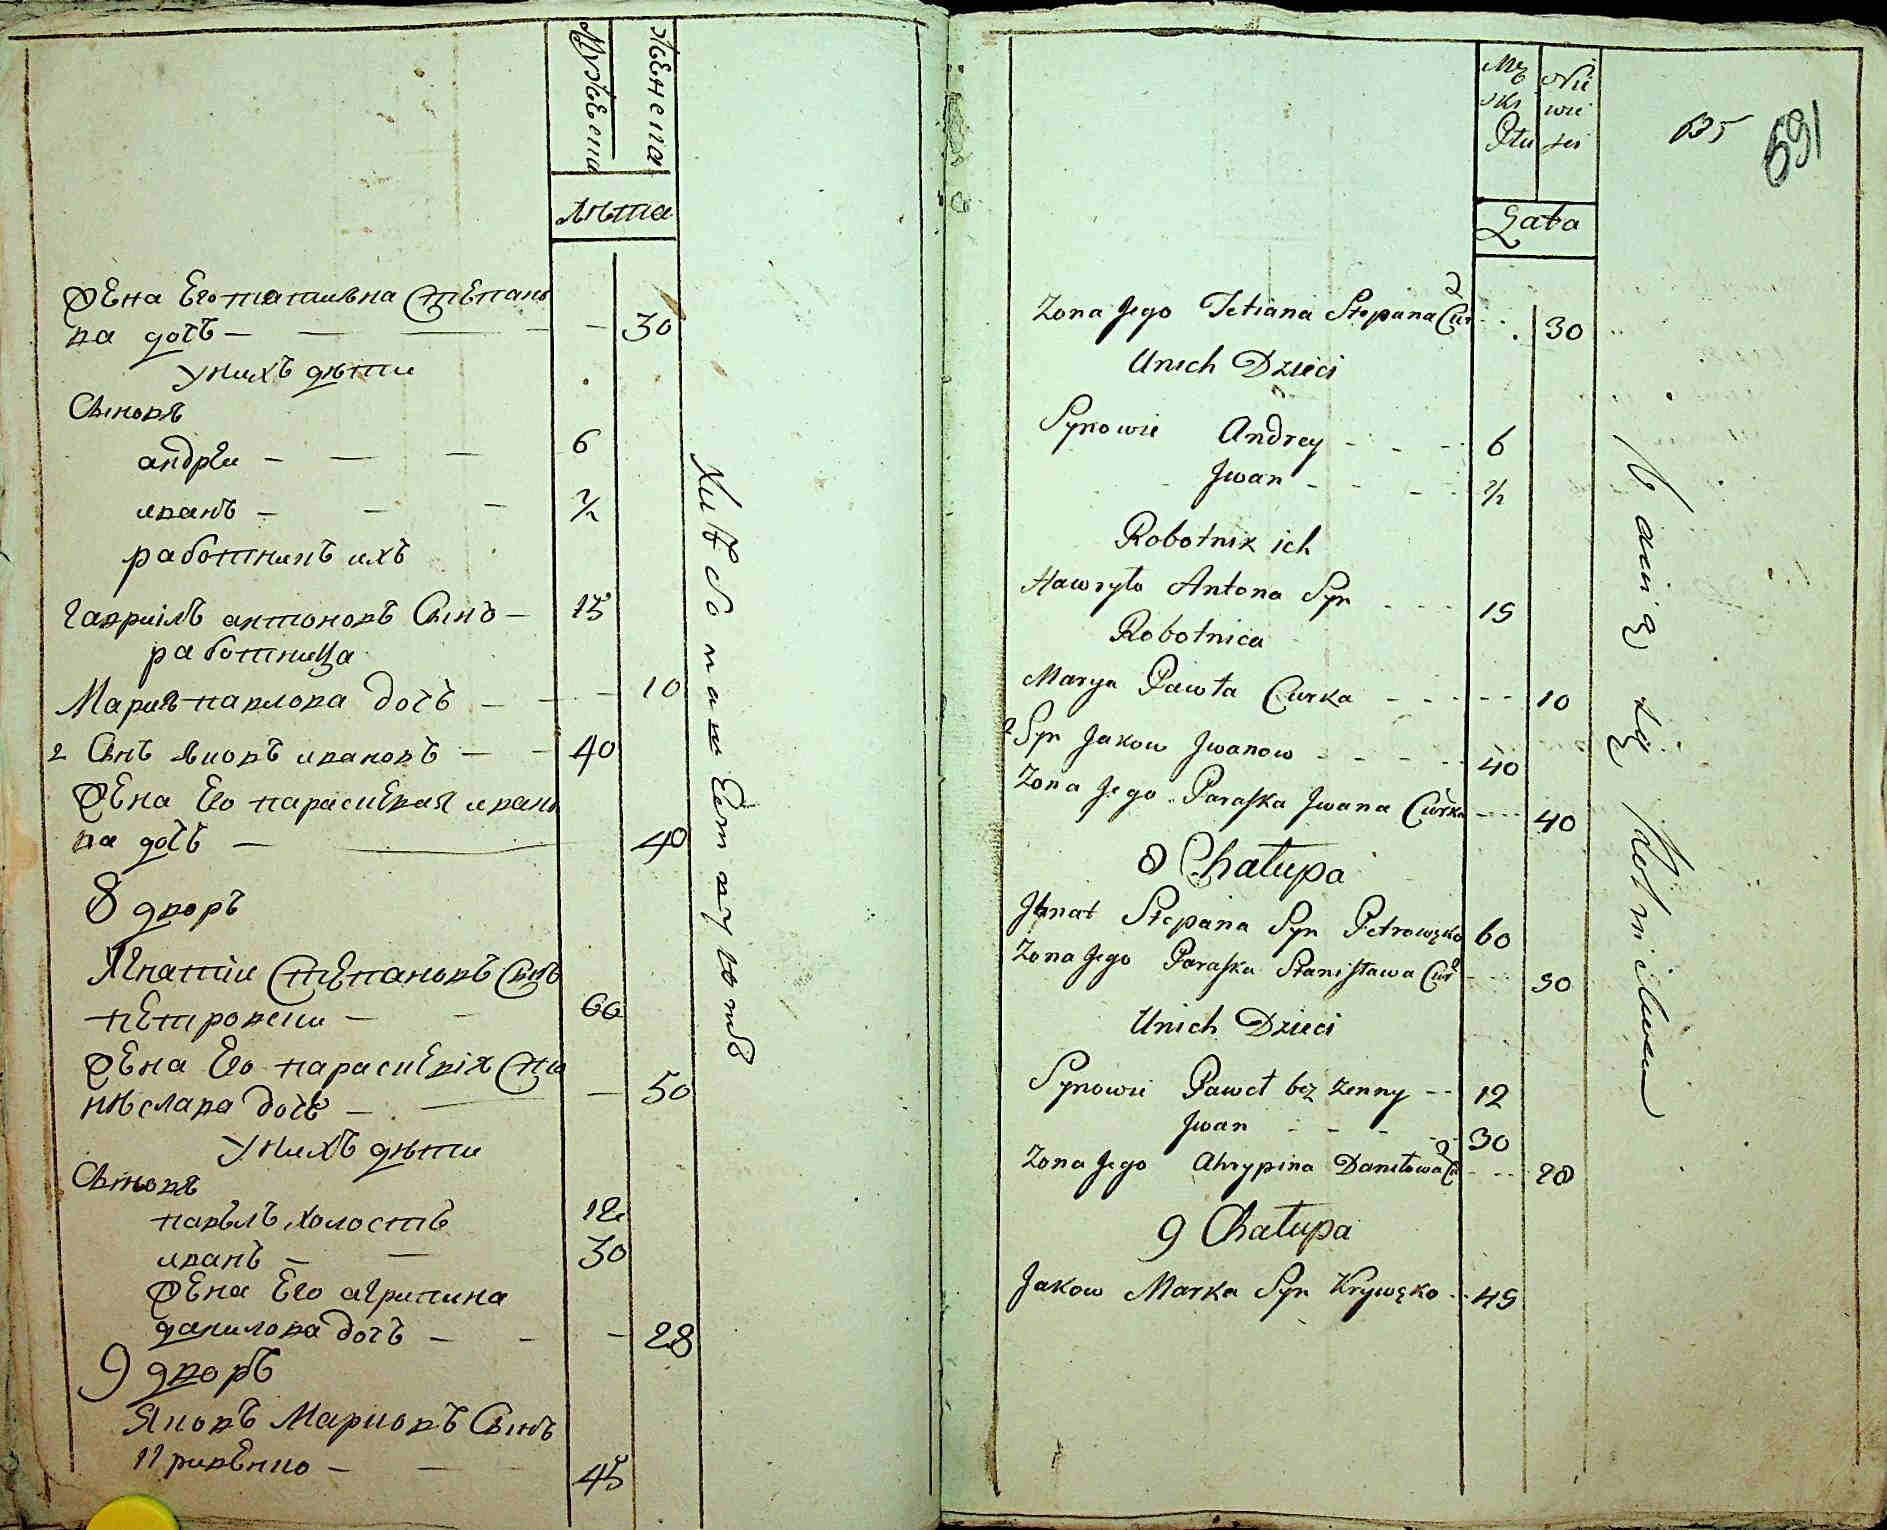 Мужеска
Женска
Лѣта
Жена Его татияна Степано
ва дочь — 30
У нихъ дѣти
Сыновя
андрѣи — 6
иванъ — 1/2
работникъ ихъ
Гавриілъ антоновъ Сынъ — 15
работница
Мария павлова дочь — 10
2 Сынъ яковъ ивановъ — 40
Жена Его параскевия ивано
ва дочь — 40
8 дворъ
Игнатіи Степановъ Сынъ
петровски — 60
Жена Его параскевія Ста
нѣслава дочь — 50
У нихъ дѣти
Сыновя
павелъ холостъ 12
иванъ — 30
Жена Его агрипина
данилова дочь — 28
9 дворъ
Яковъ Марковъ Сынъ
Кривенко — 45
Хлѣбопашествуютъ
Mę
ski
Płci
Nie
wie
ści
Lata
135
691
Zona Jego Tetiana Stepana Cur 30
Unich Dzieci
Synowie Andrey 6
Jwan 1/2
Robotnik ich
Hawryło Antona Syn 15
Robotnica
Marya Pawła Curka 10
2 Syn Jakow Jwanow 40
Zona Jego Paraska Jwana Curka 40
8 Chałupa
Jhnat Stepana Syn Petrowsko 60
Zona Jego Paraska Stanisława Cur 50
Unich Dzieci
Synowie Paweł bez zenny 12
Jwan 30
Zona Jego Ahrypina Daniłowa C 28
9 Chałupa
Jakow Marka Syn Krywęko 45
bawią się Rolnictwem